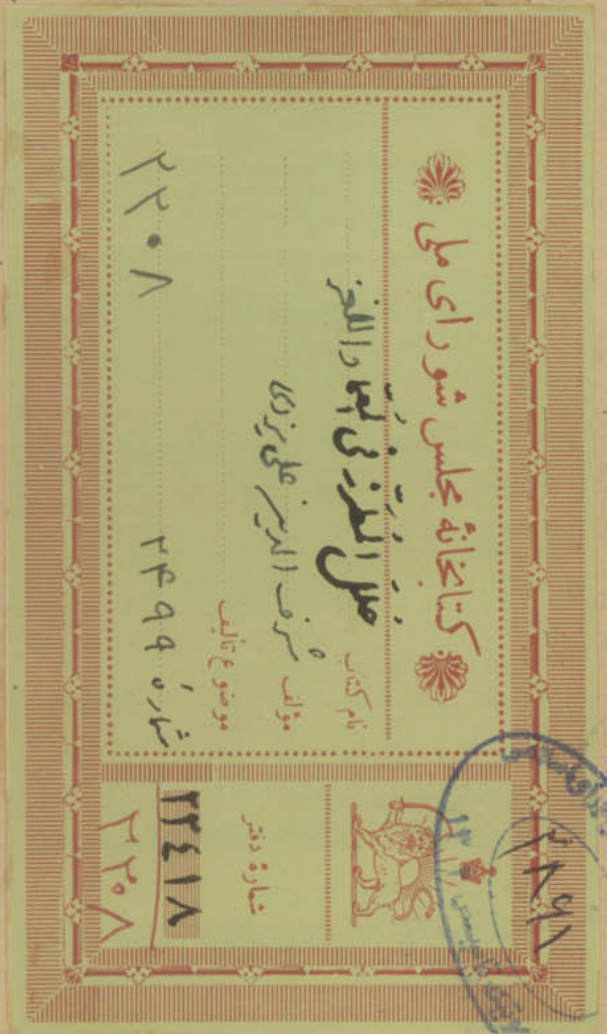 کتابخانهٔ مجلس شورای ملی
نام کتاب حلل المطرز فی المعما و اللغز
مؤلف شرف الدین علی یزدی
موضوع تألیف
شمارهٔ ۲۴۹۹
۲۲۰۸
شمارهٔ دفتر
۲۳۴۱۸
۲۲۰۸
۲۸۹۱